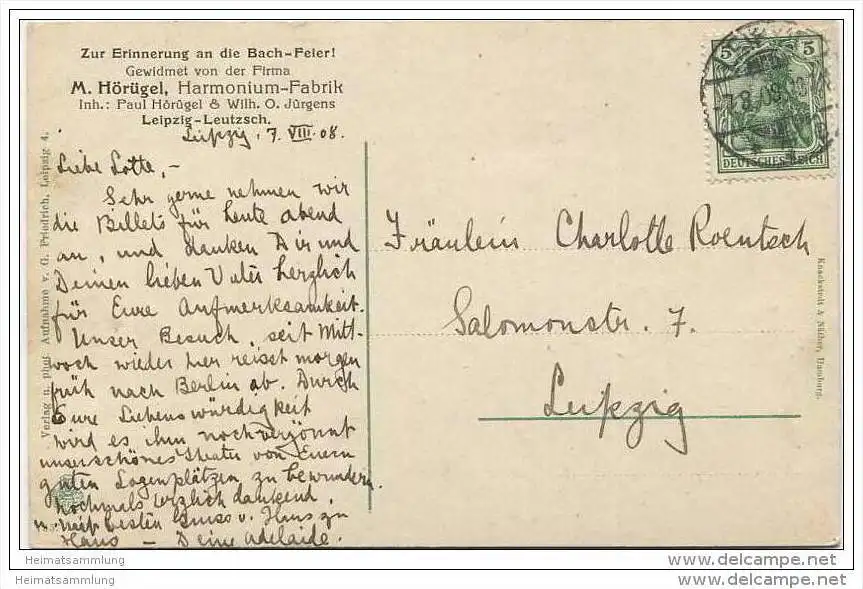 Zur Erinnerung an die Bach-Feier!
Gewidmet von der Firma
M. Hörügel, Harmonium-Fabrik
Inh.: Paul Hörügel & Wilh. O. Jürgens
Leipzig-Leutzsch.
Leipzig, 7. VIII. 08.
Liebe Lotte, -
Sehr gerne nehmen wir
die Billets für heute abend
an, und danken Dir und
Deinen lieben Vater herzlich
für Eure Aufmerksamkeit.
Unser Besuch, seit Mitt-
woch wieder hier reist morgen
früh nach Berlin ab. Durch
Eure Liebenswürdigkeit
wird es ihm noch vergönnt
unser schönes Theater von Euern
guten Logenplätzen zu bewundern.
Nochmals herzlich dankend,
u. mit besten Gruss v. Haus zu
Haus — Deine Adelaide.
Verlag u. phot. Aufnahme v. G. Friedrich, Leipzig 4.
5 5
DEUTSCHES REICH
Fräulein Charlotte Roentsch
Salomonstr. 7.
Leipzig
Knackstedt & Näther, Hamburg.
Heimatsammlung
www.delcampe.net
Heimatsammlung
www.delcampe.net